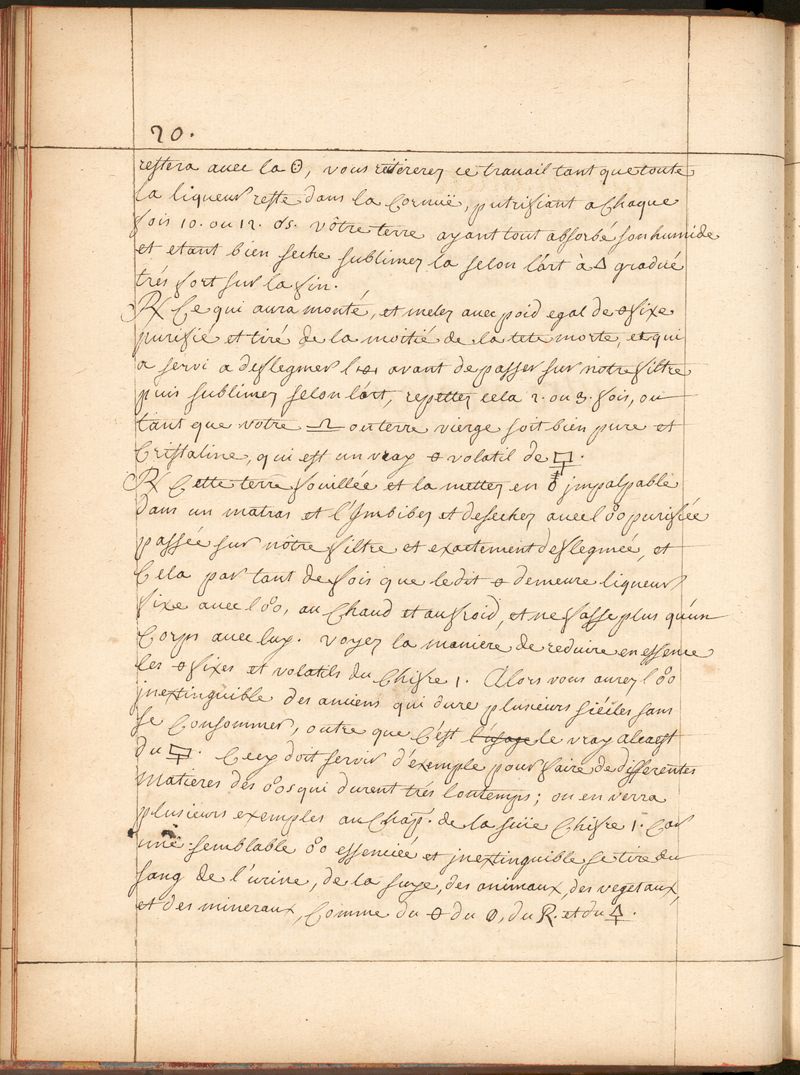 20.
restera avec la ☉, vous reitererez ce travail tant que toute
la liqueur reste dans la Cornuë, putrifiant a Chaque
fois 10. ou 12. vôtre terre ayant tout absorbé son humide
et etant bien seche sublimez la selon l'art à 🜂 gradué
trés fort sur la fin.
℞ Ce qui aura monté, et melez avec poid egal de 🜔 fixe
purifié et tiré de la moitié de la tete morte, et qui
a servi a deflegmer avant de passer sur notre filtre
puis sublimez selon l'art, repettez cela 2. ou 3. fois, ou
tant que votre ♎ ou terre vierge soit bien pure et
Cristaline, qui est un vray 🜔 volatil de 🜿.
℞ Cette terre fouillée et la mettez en impalpable
dans un matras et l'Jmbibez et desechez avec l'o͡o purifiée
passée sur nôtre filtre et exactement deflegmée, et
Cela par tant de fois que le dit 🜔 demeure liqueur
fixe avec l'o͡o, au Chaud et au froid, et ne fasse plus qu'un
Corps avec luy. Voyez la maniere de reduire en essence
les 🜔 fixes et volatils du Chifre 1. Alors vous aurez l'o͡o
jnextinguible des anciens qui dure plusieurs siécles sans
se Consommer, outre que C'est l'usage le vray alcaest
du 🜿. Cecy doit servir d'exemple pour faire de differentes
Matieres des o͡os qui durent trés lontemps; on en verra
plusieurs exemples au Chap. de la suie Chifre 1. Car
une semblable o͡o essenciée et jnextinguible se tire du
sang de l'urine, de la suye, des animaux, des vegetaux,
et des mineraux, Comme du 🜔 du 🜕, du R. et du 🜍.